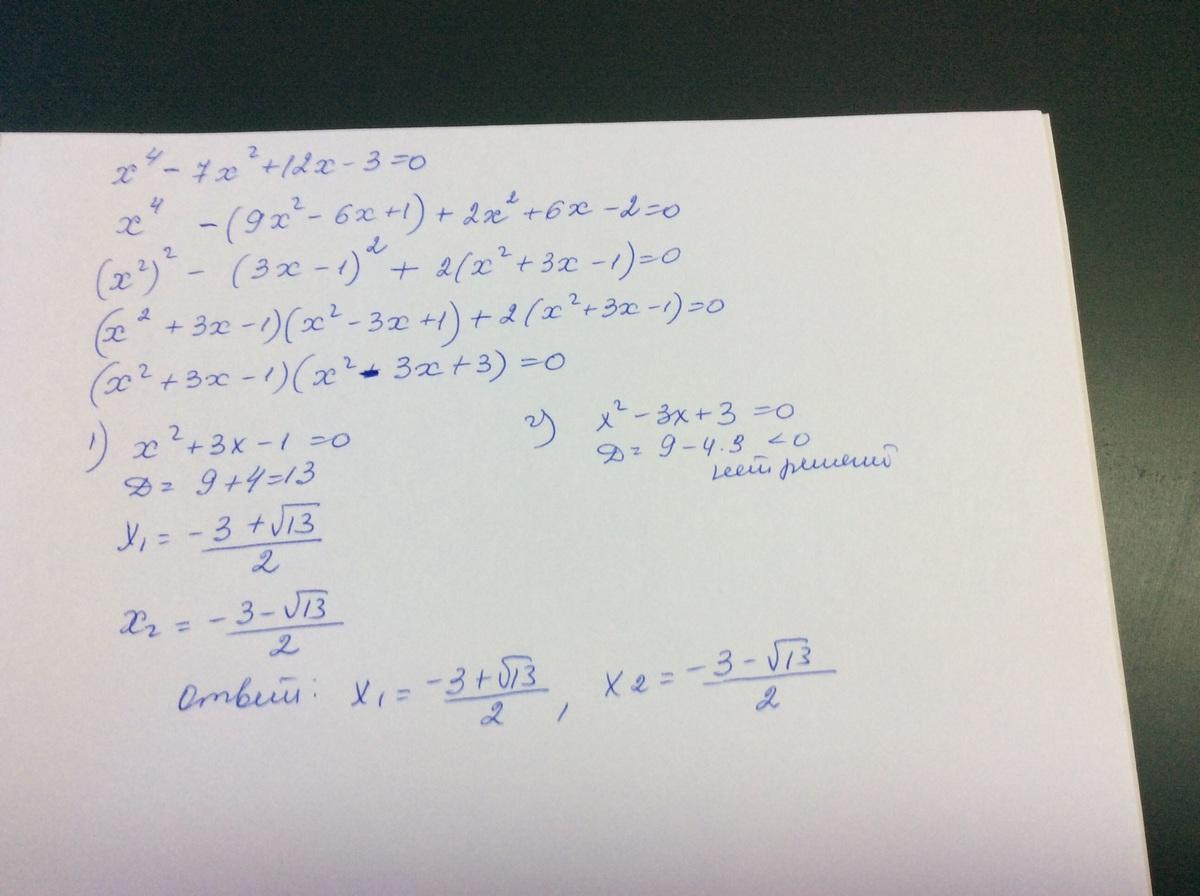 x⁴ - 7x² + 12x - 3 = 0
x⁴ - (9x² - 6x + 1) + 2x² + 6x - 2 = 0
(x²)² - (3x - 1)² + 2(x² + 3x - 1) = 0
(x² + 3x - 1)(x² - 3x + 1) + 2(x² + 3x - 1) = 0
(x² + 3x - 1)(x² - 3x + 3) = 0
1) x² + 3x - 1 = 0
D = 9 + 4 = 13
x₁ = (-3 + √13)/2
x₂ = (-3 - √13)/2
2) x² - 3x + 3 = 0
D = 9 - 4·3 < 0
нет решений
Ответ: x₁ = (-3 + √13)/2, x₂ = (-3 - √13)/2